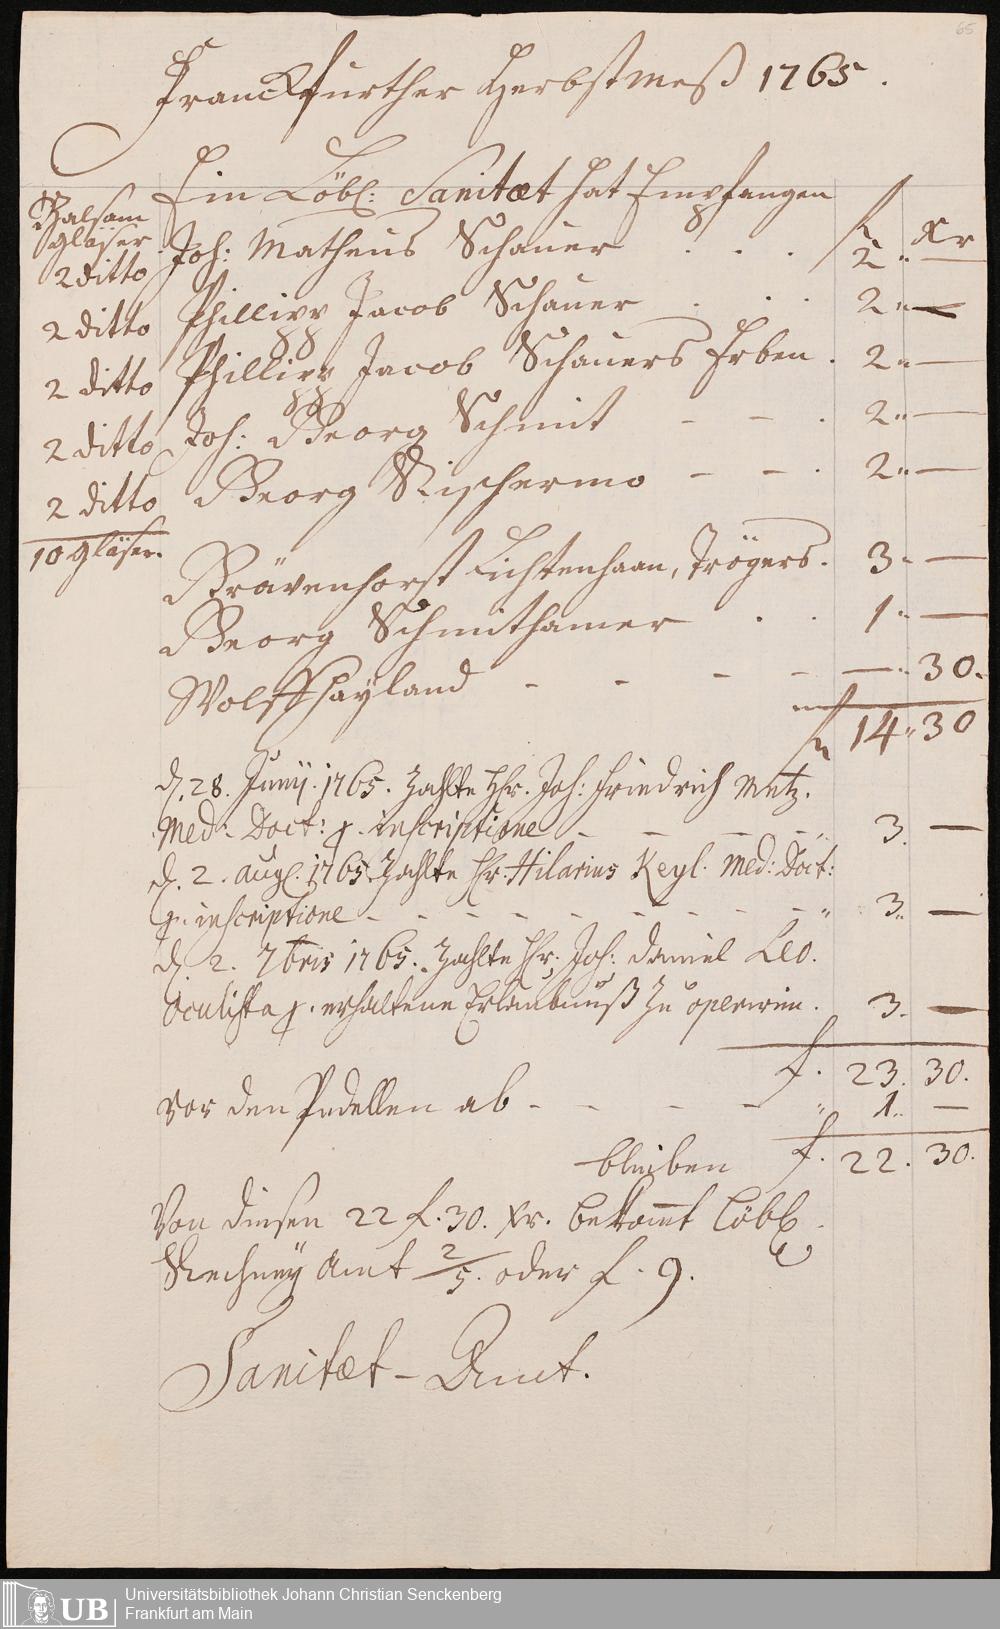 65
Franckfurther Herbstmeß 1765.
Ein Löbl: Sanitæt hat Empfangen
f. Xr
Balsam
gläser
2 ditto Joh: Matheus Schauer . . . 2.. —
2 ditto Phillipp Jacob Schauer . . . 2.. —
2 ditto Phillipp Jacob Schauers Erben . 2.. —
2 ditto Joh: Georg Schmit – – . 2.. —
2 ditto Georg Rischermo – – . 2.. —
10 gläser.
Grävenhorst Lichtenhaan, Trögers. 3. —
Georg Schmithamer . . 1. —
Wolff Hayland – – – – — . 30.
f 14.. 30
d. 28. Junij. 1765. Zahlte Hr. Joh: Friedrich Metz.
Med: Doct: p. inscriptione – – – – .. 3. —
d. 2. Augl. 1765. Zahlte Hr. Hilarius Keyl. Med: Doct:
p. inscriptione – – – – – – – – .. 3.. —
d. 2. 7bris 1765. Zahlte Hr. Joh: Daniel Leo.
Oculista p. erhaltene Erlaubnuß zu operiren. 3. —
f. 23. 30.
vor den Pedellen ab – – – – .. 1.. —
bleiben f. 22. 30.
Von diesen 22 f. 30. Xr. bekommt Löbl.
Rechney Amt 2/5. oder f. 9.
Sanitæt – Amt.
UB
Universitätsbibliothek Johann Christian Senckenberg
Frankfurt am Main